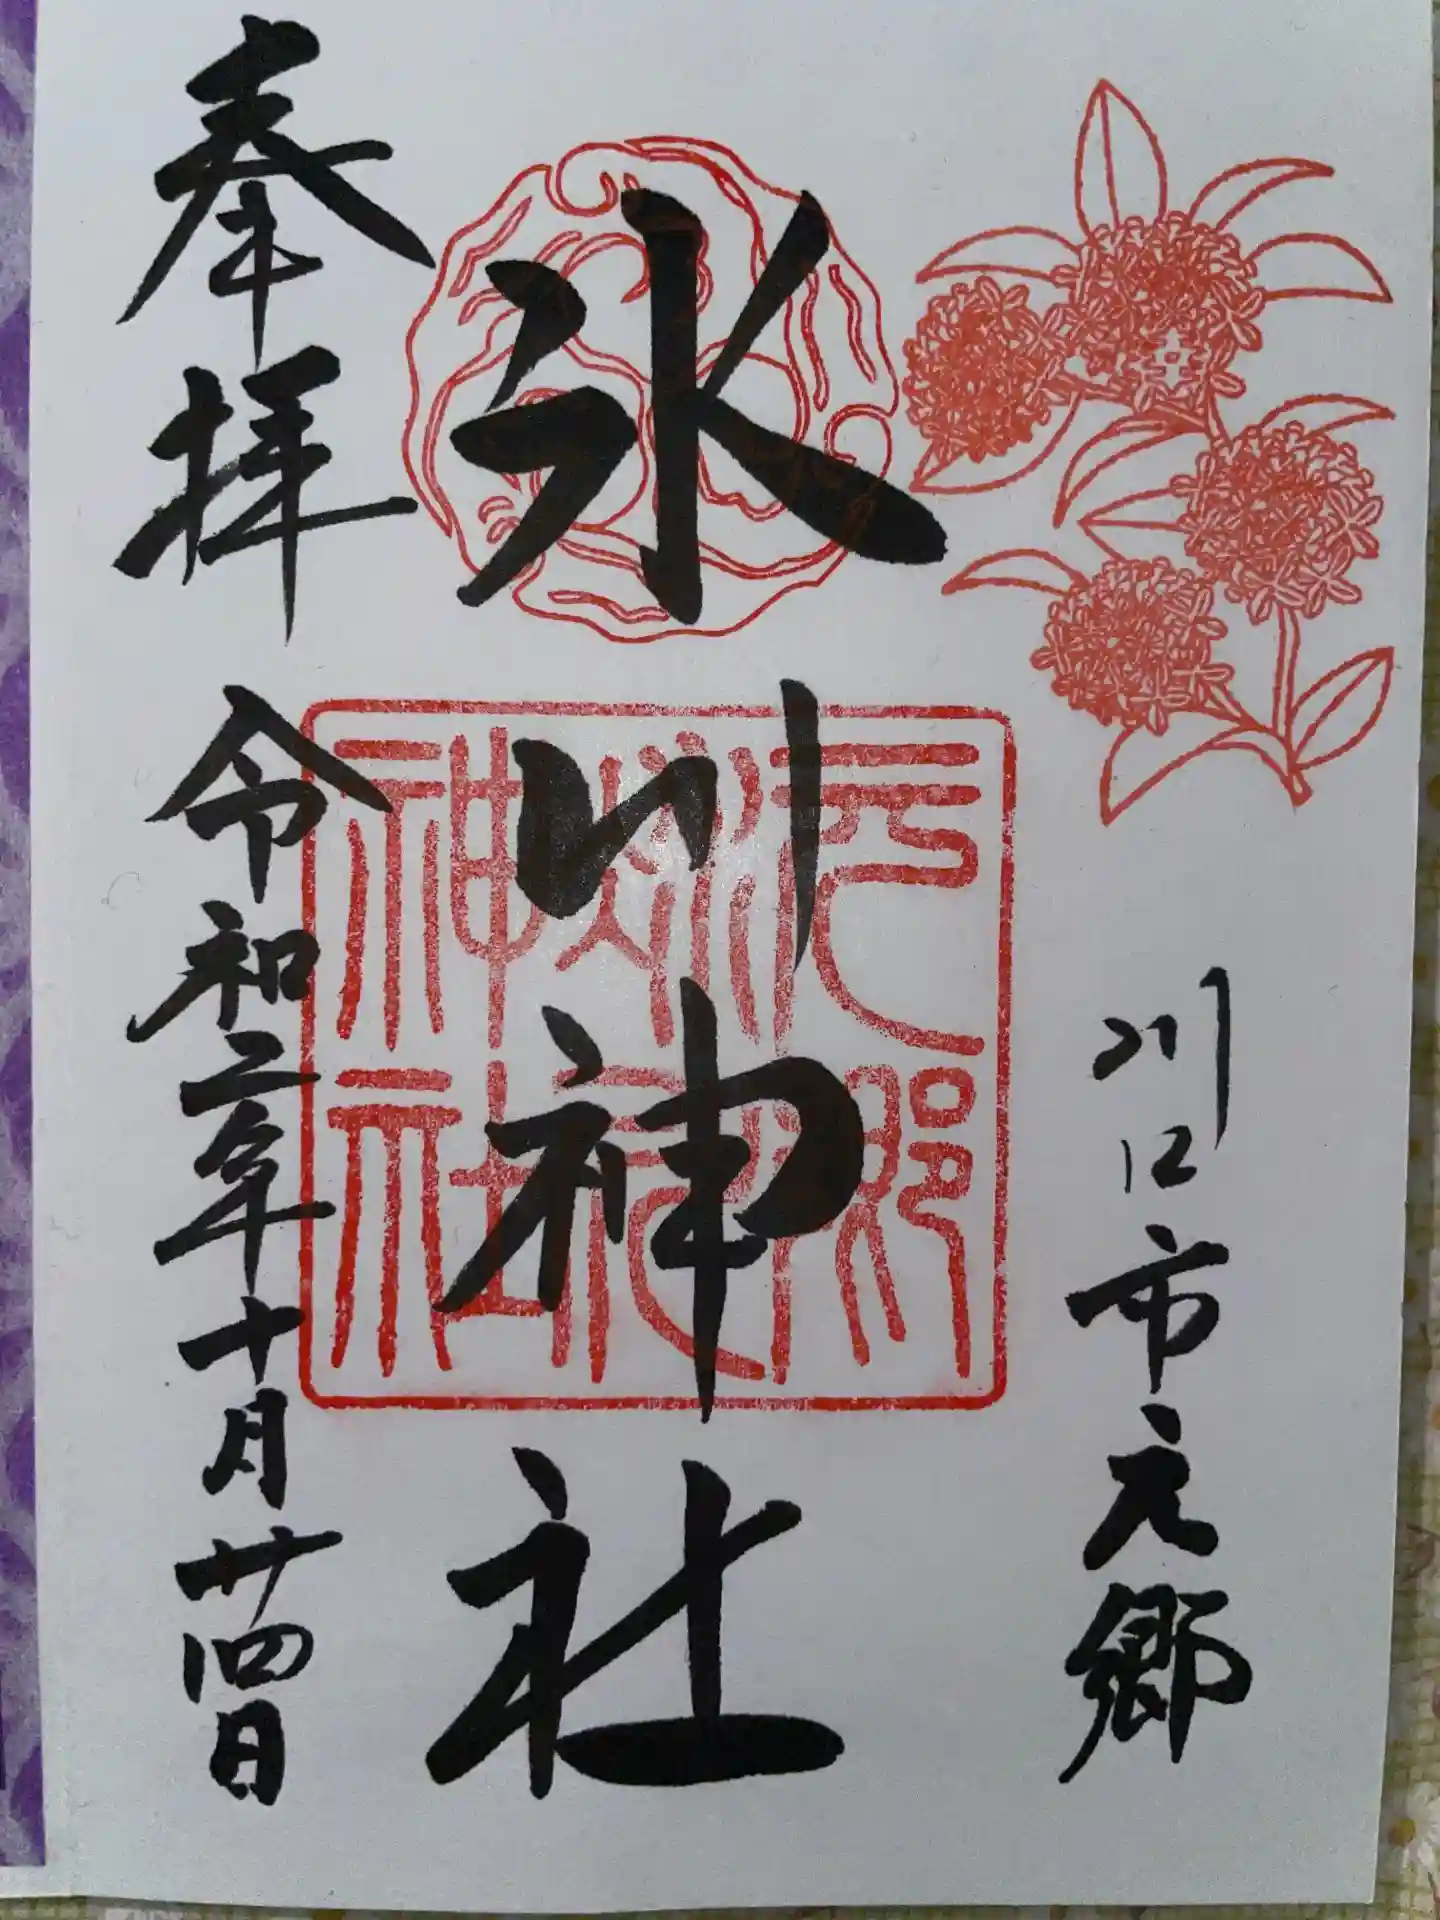 川口市元郷
氷川神社
元郷
氷川
神社
奉拝
令和二年十月廿四日